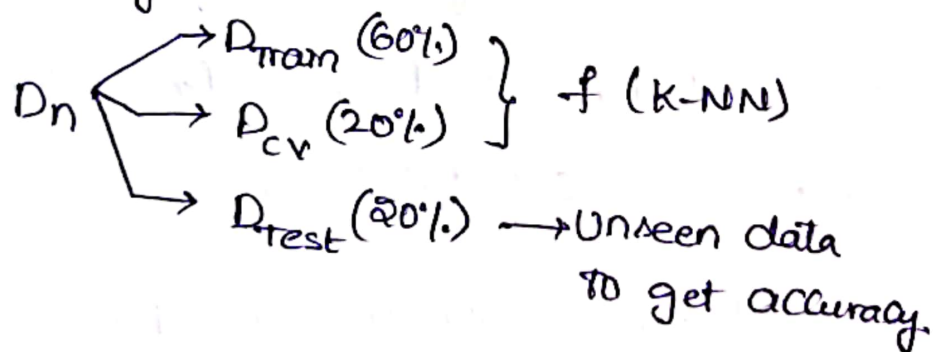 D_Train (60%)
D_n
D_CV (20%)
} f (K-NN)
D_Test (20%) → Unseen data
to get accuracy.